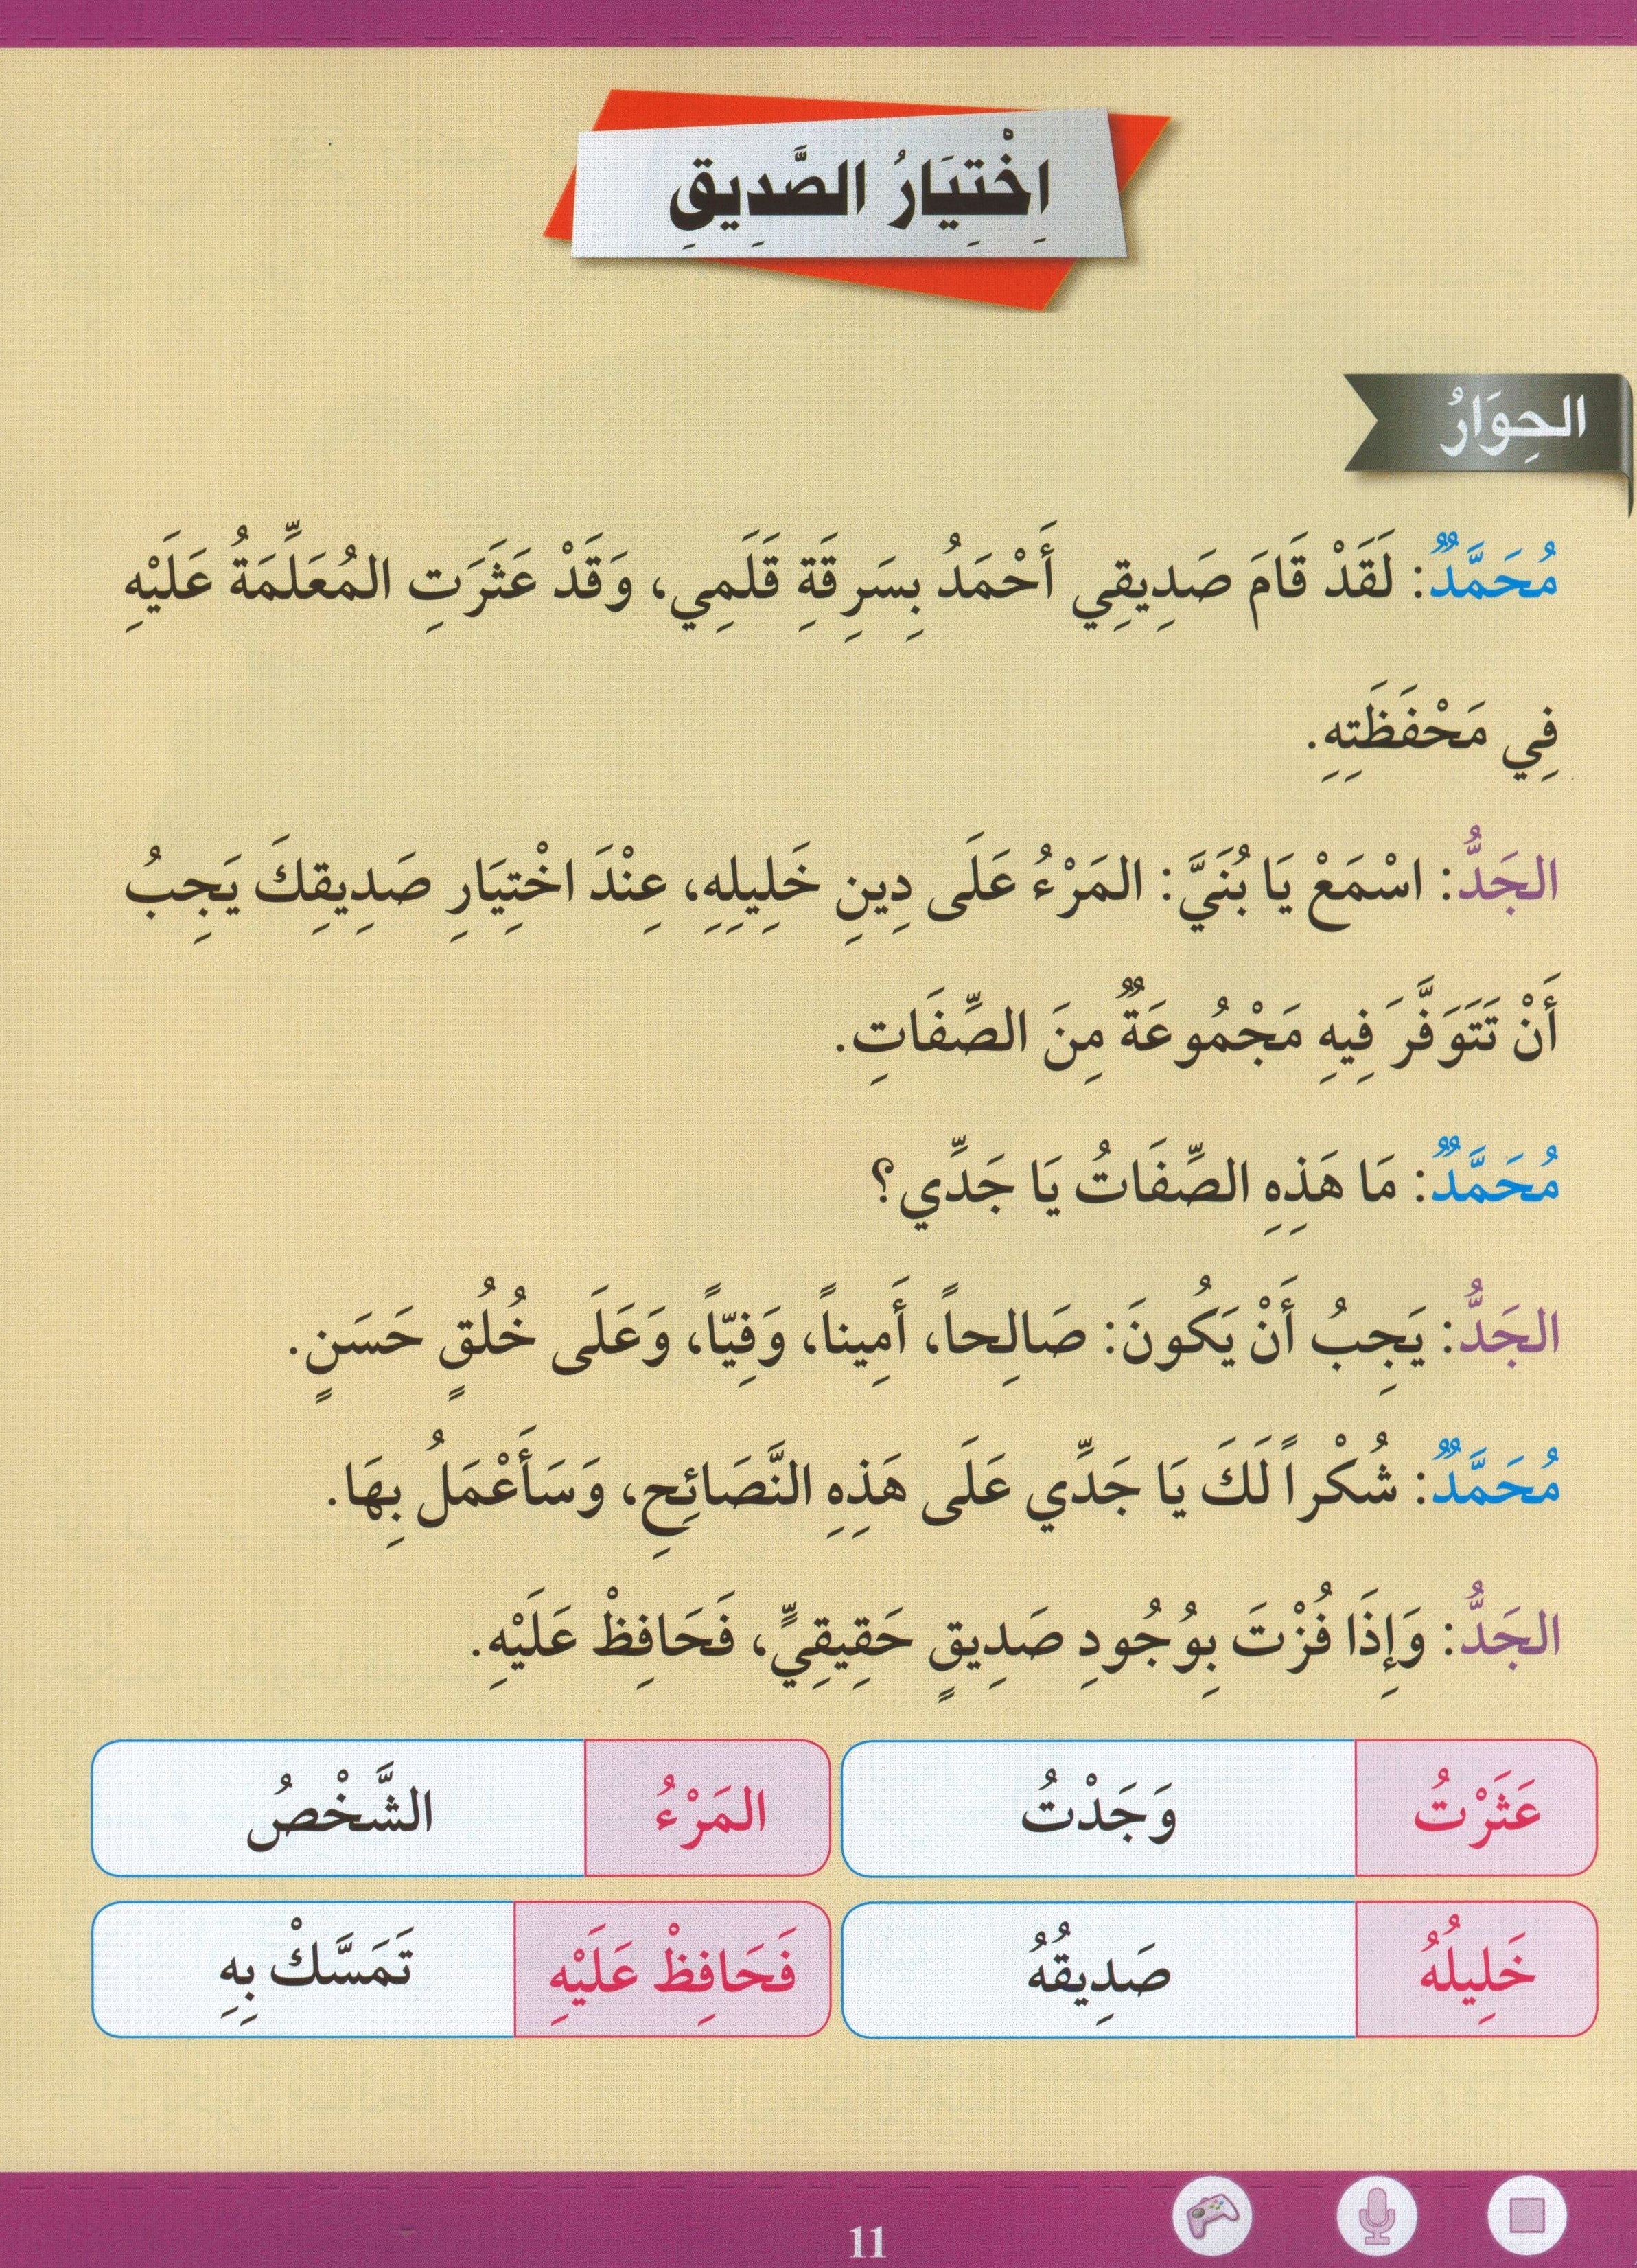 اِخْتِيَارُ الصَّدِيقِ
الحِوَارُ
مُحَمَّدٌ: لَقَدْ قَامَ صَدِيقِي أَحْمَدُ بِسَرِقَةِ قَلَمِي، وَقَدْ عَثَرَتِ المُعَلِّمَةُ عَلَيْهِ
فِي مَحْفَظَتِهِ.
الجَدُّ: اسْمَعْ يَا بُنَيَّ: المَرْءُ عَلَى دِينِ خَلِيلِهِ، عِنْدَ اخْتِيَارِ صَدِيقِكَ يَجِبُ
أَنْ تَتَوَفَّرَ فِيهِ مَجْمُوعَةٌ مِنَ الصِّفَاتِ.
مُحَمَّدٌ: مَا هَذِهِ الصِّفَاتُ يَا جَدِّي؟
الجَدُّ: يَجِبُ أَنْ يَكُونَ: صَالِحاً، أَمِيناً، وَفِيّاً، وَعَلَى خُلُقٍ حَسَنٍ.
مُحَمَّدٌ: شُكْراً لَكَ يَا جَدِّي عَلَى هَذِهِ النَّصَائِحِ، وَسَأَعْمَلُ بِهَا.
الجَدُّ: وَإِذَا فُزْتَ بِوُجُودِ صَدِيقٍ حَقِيقِيٍّ، فَحَافِظْ عَلَيْهِ.
عَثَرْتُ وَجَدْتُ المَرْءُ الشَّخْصُ
خَلِيلُهُ صَدِيقُهُ فَحَافِظْ عَلَيْهِ تَمَسَّكْ بِهِ
11